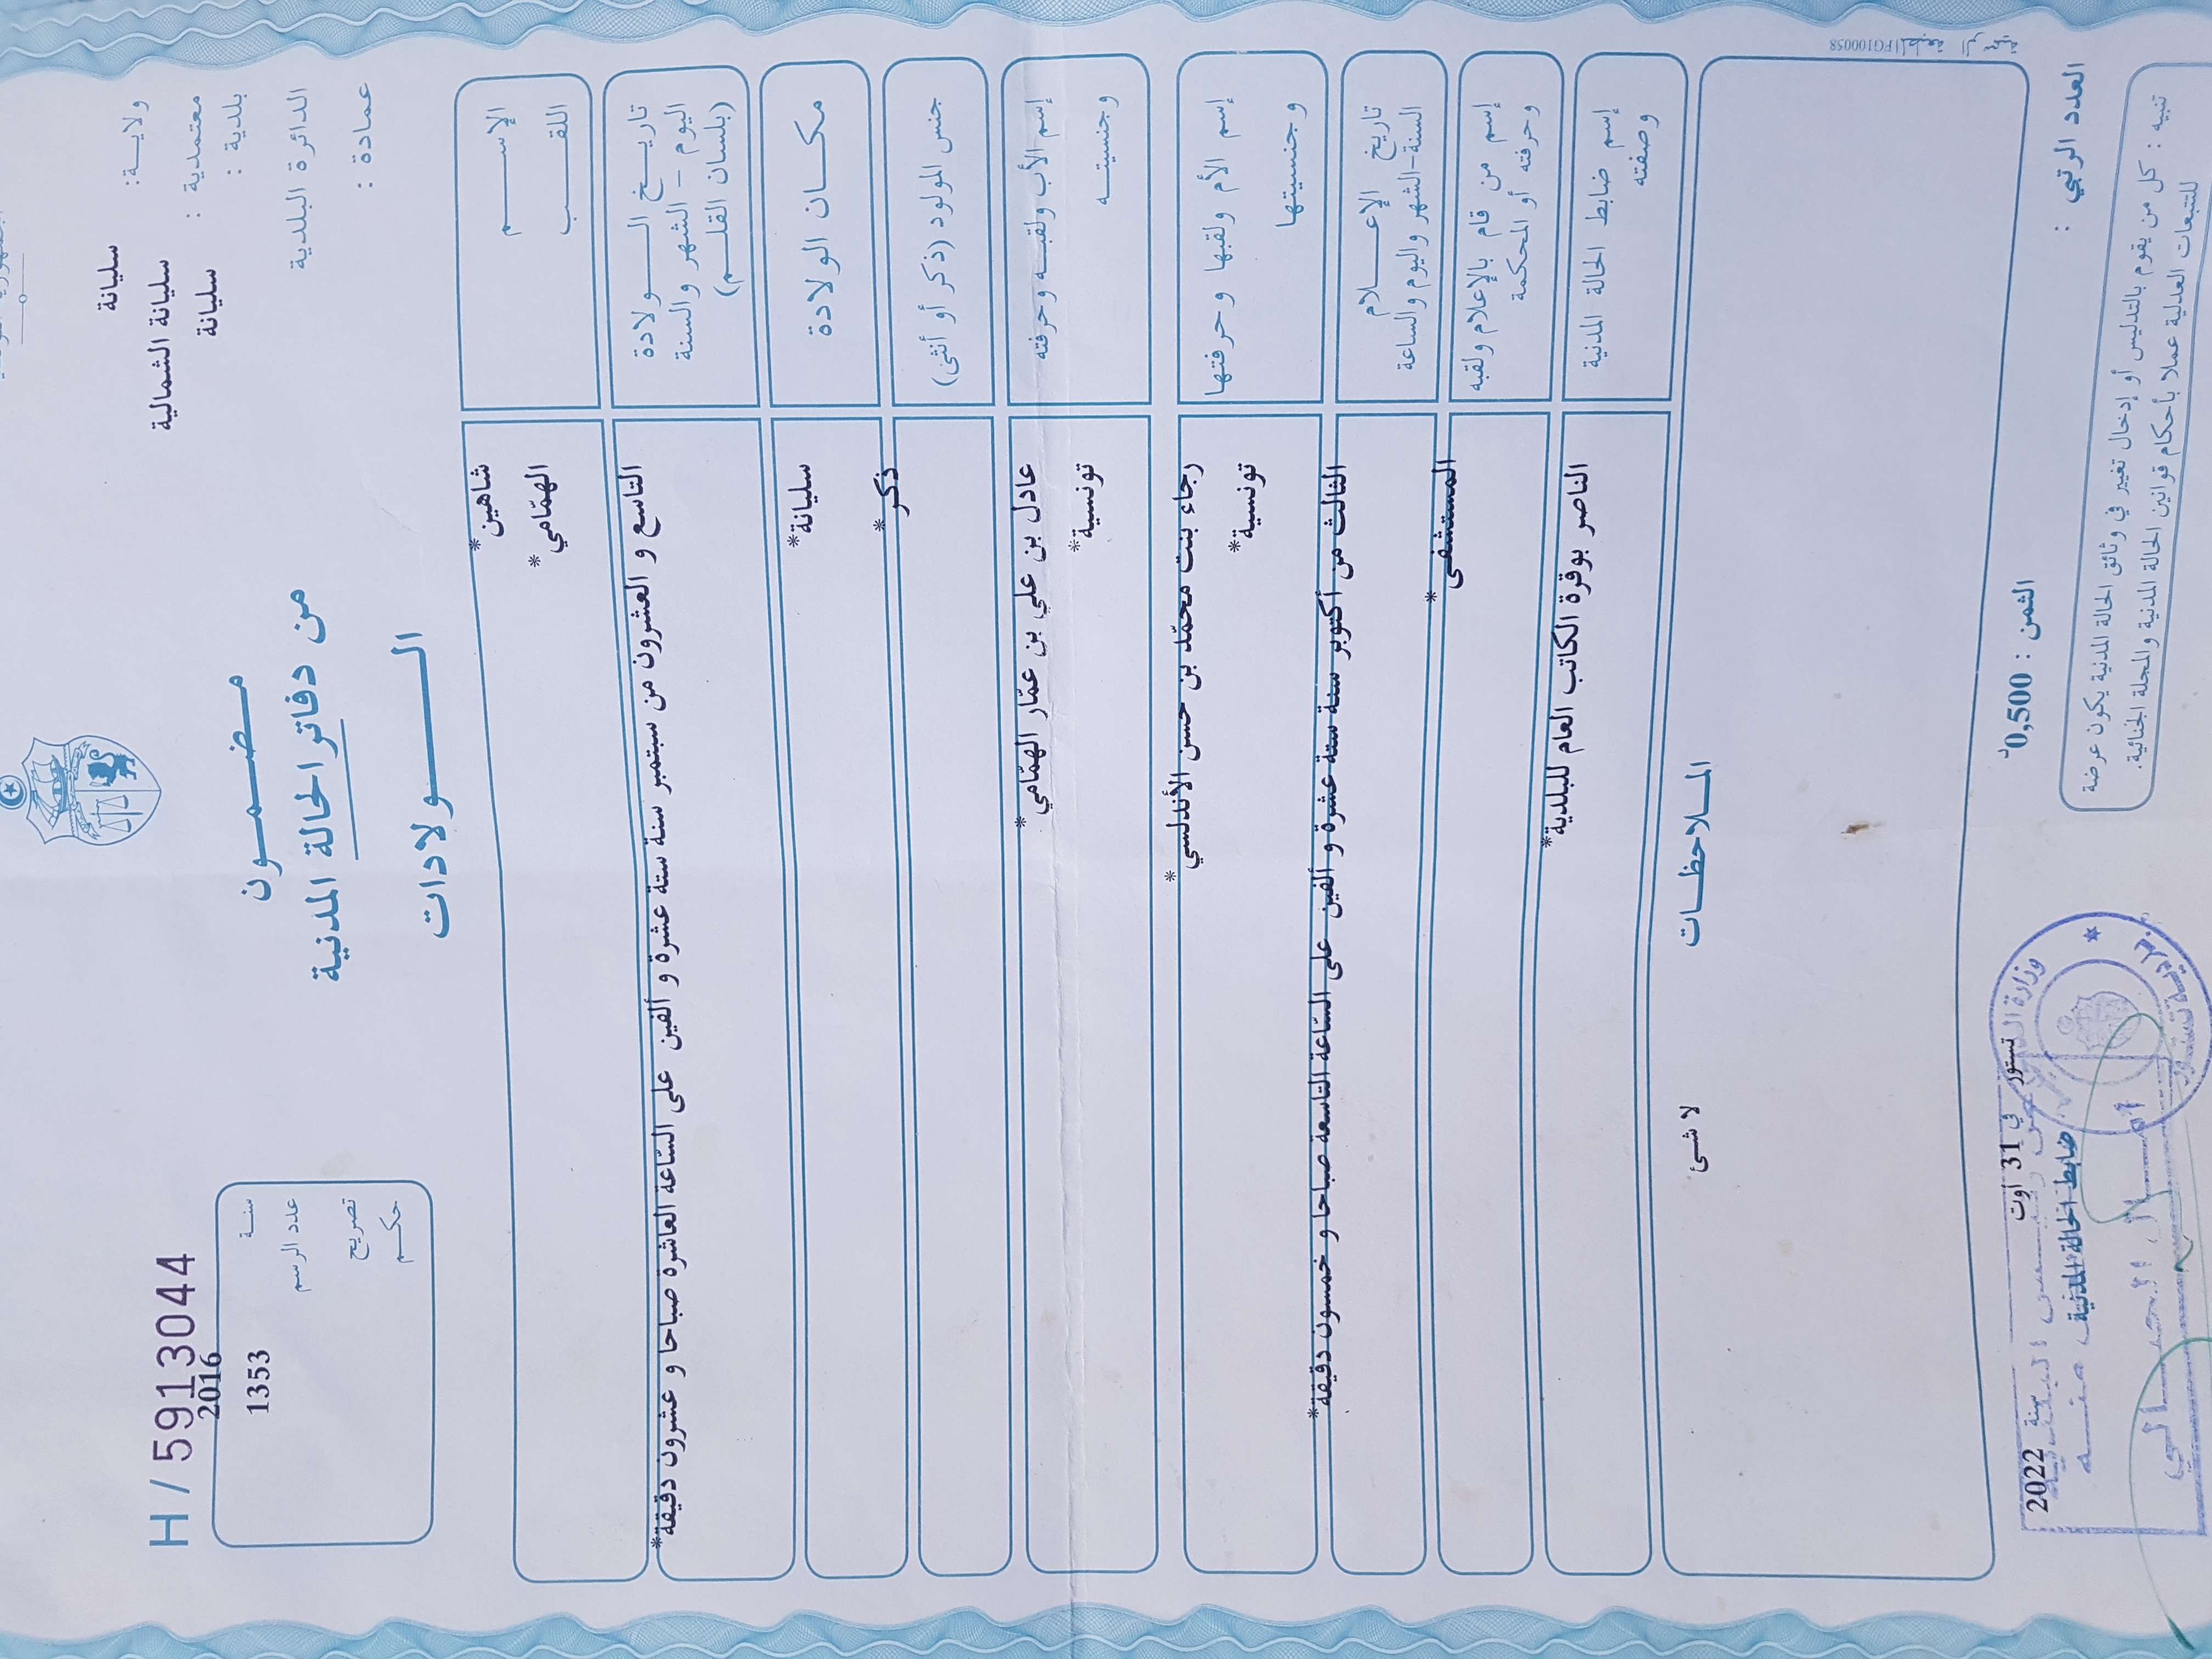 ولاية: سليانة
معتمدية : سليانة الشمالية
بلدية : سليانة
الدائرة البلدية
عمادة :
مضمون
من دفاتر الحالة المدنية
الولادات
H / 5913044
سنة 2016
عدد الرسم 1353
تصريح
حكم
الإسم شاهين*
اللقب الهمّامي*
تاريخ الولادة
اليوم - الشهر والسنة
(بلسان القلم)
التاسع و العشرون من سبتمبر سنة ستة عشرة و ألفين على السّاعة العاشرة صباحا و عشرون دقيقة*
مكان الولادة سليانة*
جنس المولود (ذكر أو أنثى) ذكر*
إسم الأب ولقبه وحرفته عادل بن علي بن عمّار الهمّامي*
وجنسيته تونسية*
إسم الأم ولقبها وحرفتها رجاء بنت محمّد بن حسن الأندلسي*
وجنسيتها تونسية*
تاريخ الإعلام
السنة-الشهر واليوم والساعة
الثالث من أكتوبر سنة ستة عشرة و ألفين على السّاعة التاسعة صباحا و خمسون دقيقة*
إسم من قام بالإعلام ولقبه
وحرفته أو المحكمة
المستشفى*
إسم ضابط الحالة المدنية
وصفته
الناصر بوقرة الكاتب العام للبلدية*
الملاحظات
لا شئ
المطبعة الرسمية FG100058
العدد الرتبي :
الثمن : 0,500د
تستور في 31 أوت سنة 2022
ضابط الحالة المدنية
تنبيه : كل من يقوم بالتدليس أو إدخال تغيير في وثائق الحالة المدنية يكون عرضة
للتتبعات العدلية عملا بأحكام قوانين الحالة المدنية والمجلة الجنائية.